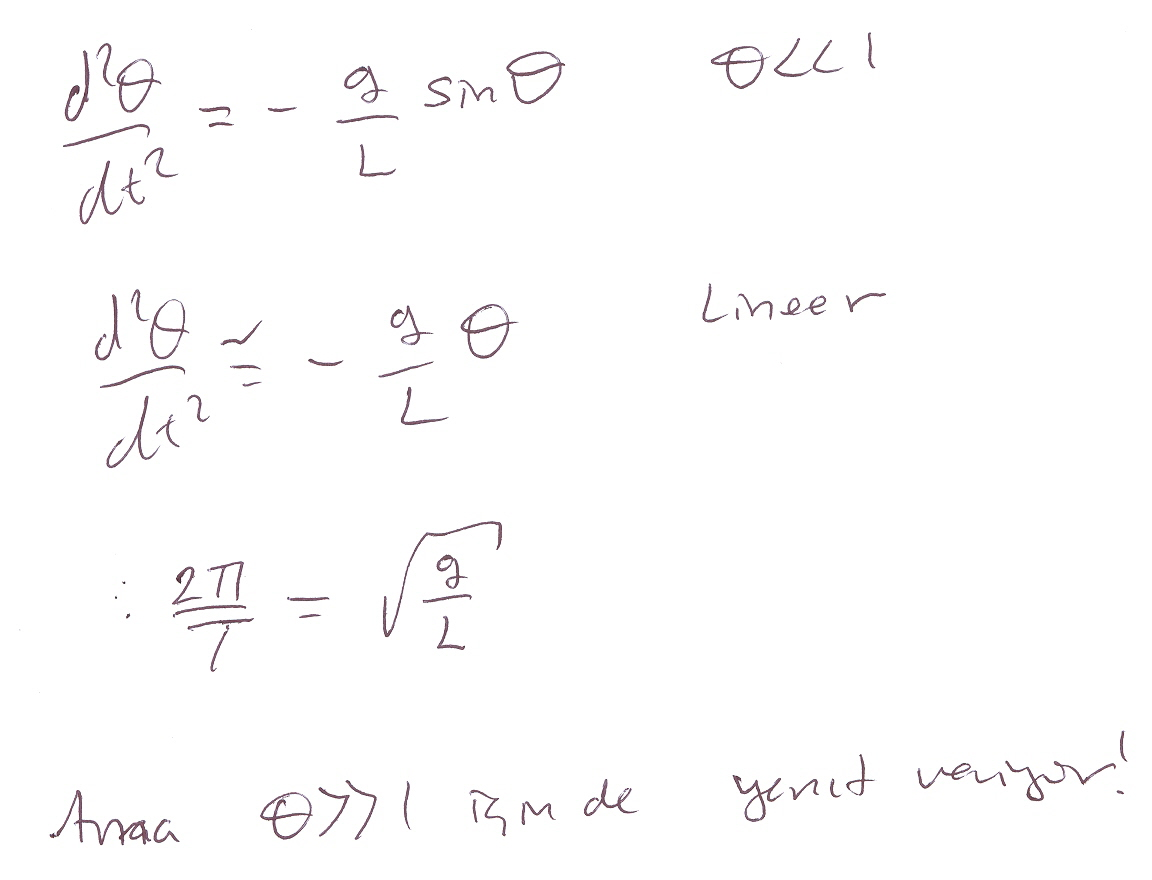 d²θ/dt² = - g/L sinθ    θ<<1
d²θ/dt² ≅ - g/L θ    Lineer
∴ 2π/T = √(g/L)
Ama θ>>1 için de yanıt veriyor!